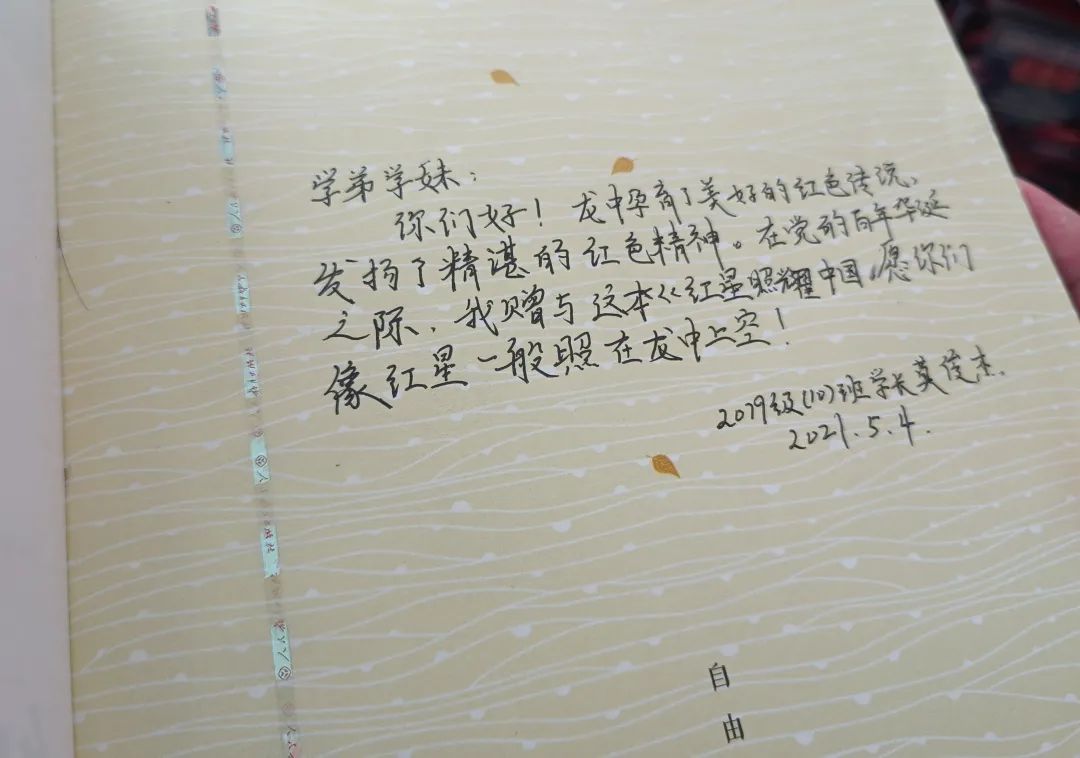 学弟学妹：
你们好！龙中孕育了美好的红色传说、
发扬了精湛的红色精神。在党的百年华诞
之际，我赠与这本《红星照耀中国，愿你们
像红星一般照在龙中上空！
2019级(10)班学长莫俊杰.
2021.5.4.
自
由